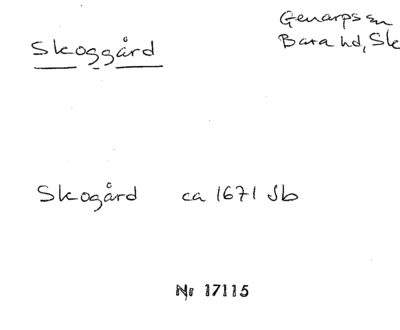 Skoggård
Genarps sn
Bara hd, Sk
Skogård ca 1671 Jb
Nr 17115